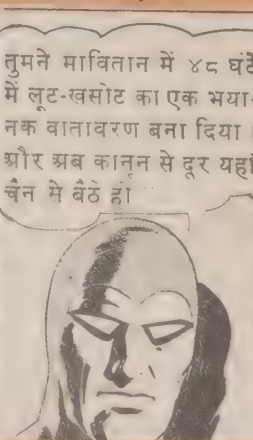 तुमने मावितान में ४८ घंटे
में लूट-खसोट का एक भया-
नक वातावरण बना दिया ।
और अब कानून से दूर यहां
चैन से बैठे हो